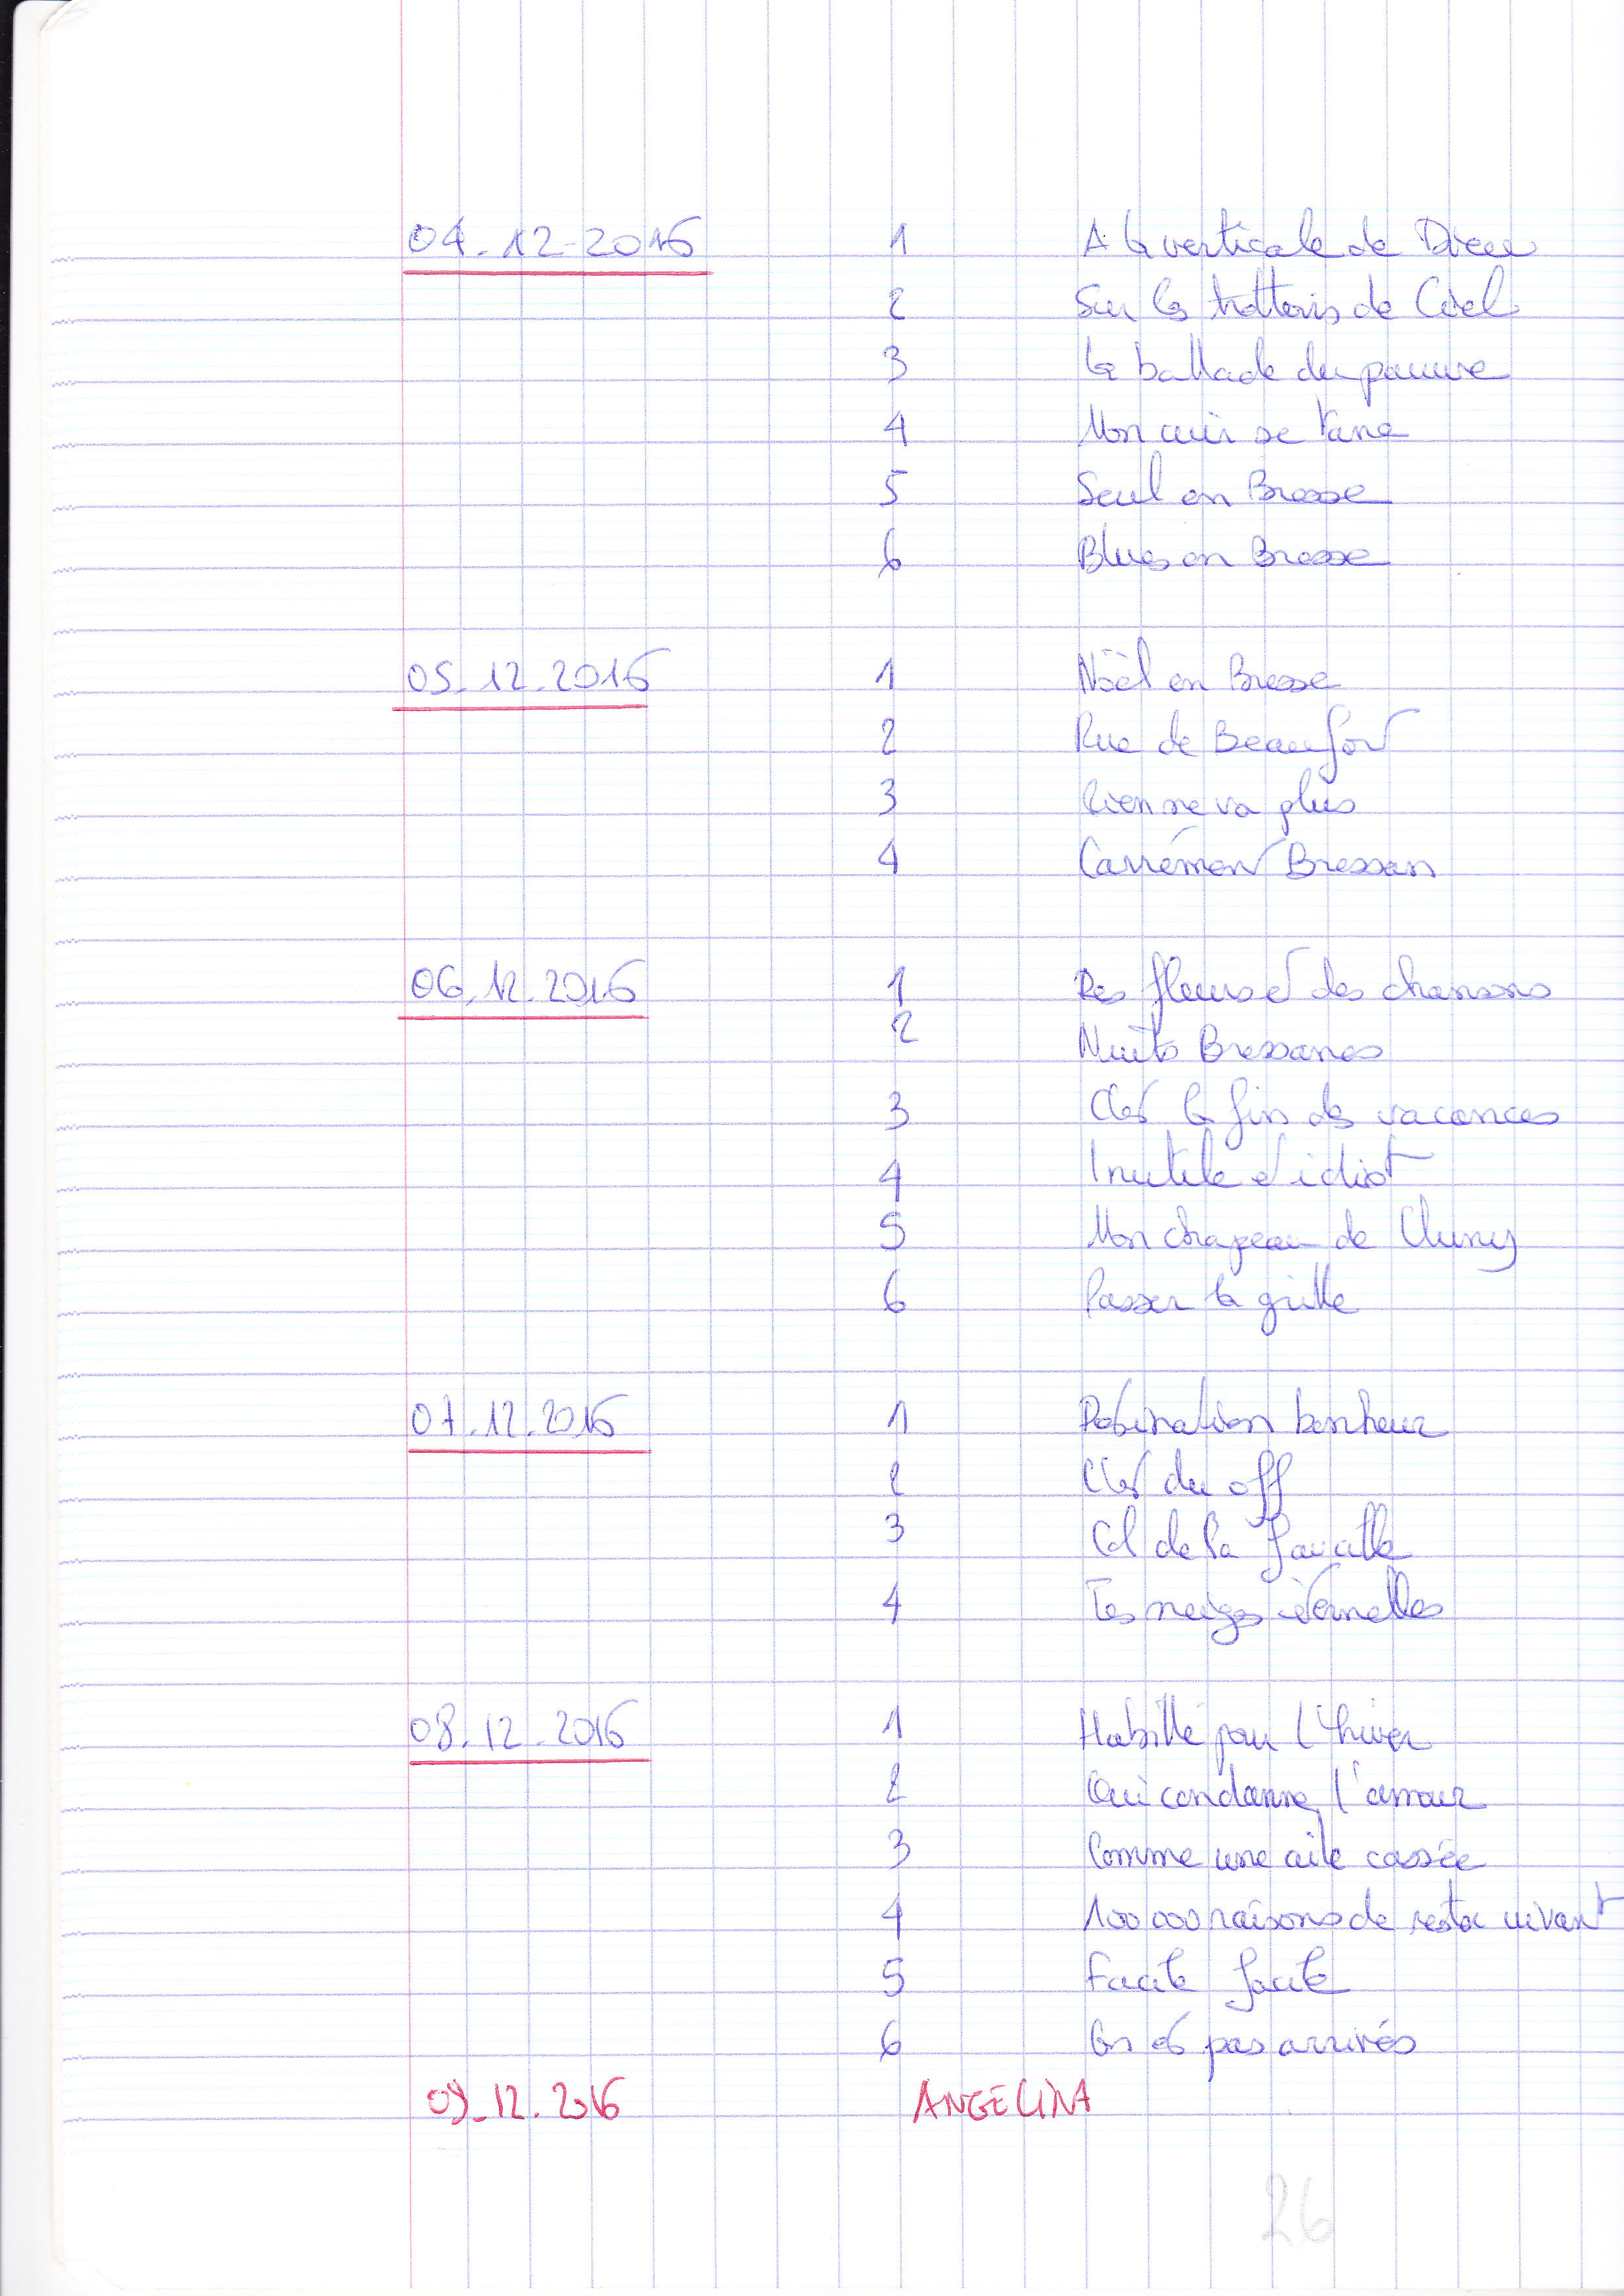 04.12-2016 1 A la verticale de Dieu
2 Sur les trottoirs de Ciel
3 La ballade du pauvre
4 Mon cuir se tane
5 Seul en Bresse
6 Blues en Bresse
05.12.2016 1 Nöel en Bresse
2 Rue de Beaufort
3 Rien ne va plus
4 Carrément Bressan
06.12.2016 1 Des fleurs et des chansons
2 Nuits Bressanes
3 C'est la fin des vacances
4 Inutile et idiot
5 Mon chapeau de Cluny
6 Passer la grille
07.12.2016 1 Destination bonheur
2 C'est du off
3 Col de la
4 Tes neiges éternelles
08.12.2016 1 Habillé pour l'hiver
2 Qui condamne l'amour
3 Comme une aile cassée
4 100 000 raisons de rester vivant
5 Facile facile
6 On est pas arrivés
09.12.2016 ANGELINA
26